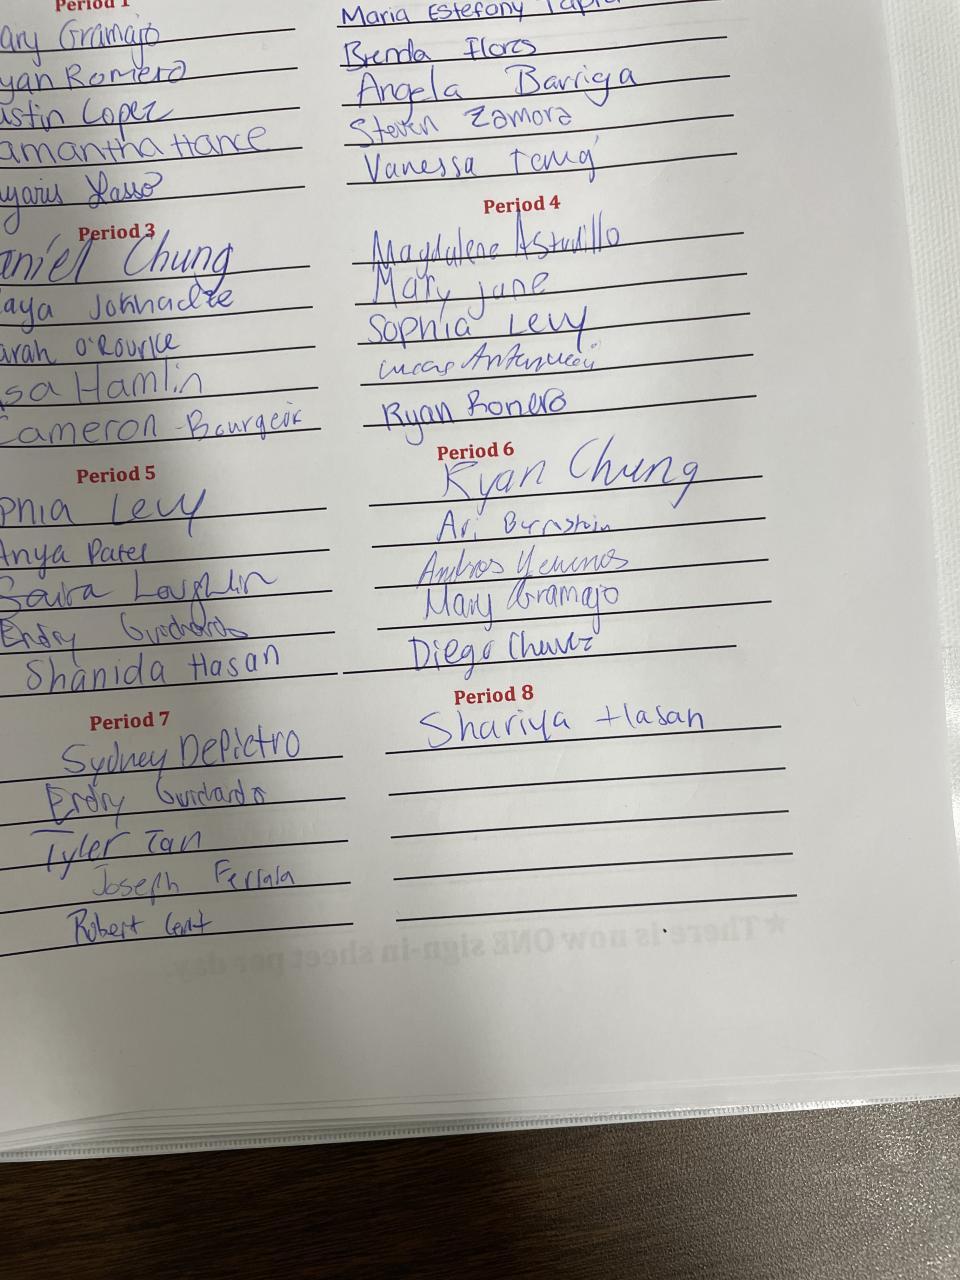 Period 1
ary Gramajo
yan Romero
ustin Lopez
amantha Hance
yaris Lasso
Maria Estefany
Brenda Flores
Angela Barriga
Steven Zamora
Vanessa
Period 3
aniel Chung
aya
arah O'Rourke
sa Hamlin
Cameron Bourgeois
Period 4
Magdalene Astudillo
Mary Jane
Sophia Levy
Lucas
Ryan Romero
Period 5
phia Levy
Anya Patel
Loughlin
Endry Guichardo
Shanida Hasan
Period 6
Ryan Chung
Ari Bernstein
Mary Gramajo
Diego Chavez
Period 7
Sydney DePietro
Endry Guichardo
Tyler Tan
Joseph Ferrara
Robert
Period 8
Shariya Hasan
★ There is now ONE sign-in sheet per day.